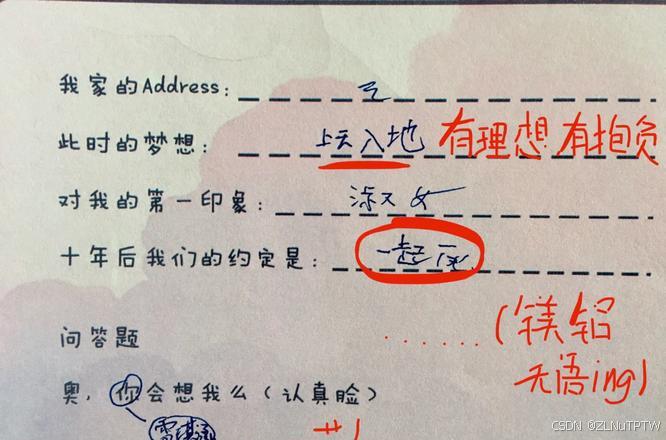 我家的Address:
此时的梦想: 上天入地 有理想 有抱负
对我的第一印象:
十年后我们的约定是: 一起
(镁铝
问答题 ......
无语ing)
奥,你会想我么(认真脸)
CSDN @ZLNuTPTW